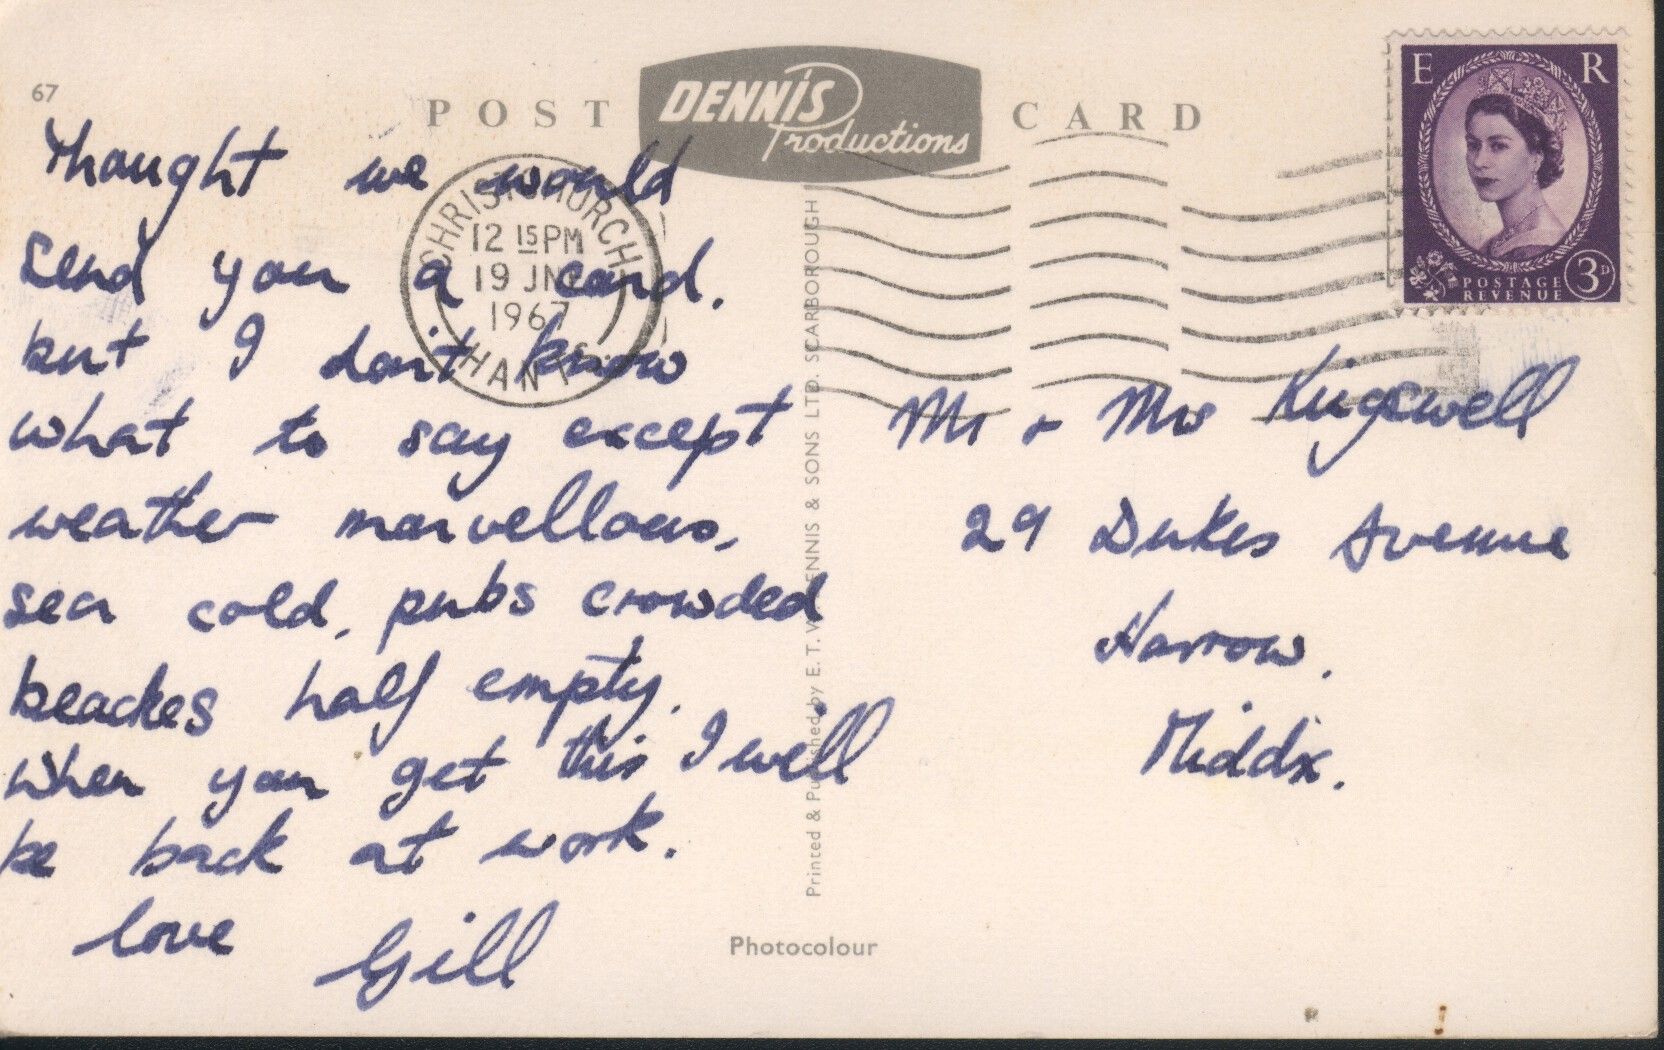 67
POST DENNIS Productions CARD
E R
POSTAGE REVENUE 3D
CHRISTCHURCH
12 15 PM
19 JNE
1967
HANTS.
Thought we would
send you a card.
but I don't know
what to say except
weather marvellous,
sea cold, pubs crowded
beaches half empty.
When you get this I will
be back at work.
love Gill
Printed & Published by E. T. W. DENNIS & SONS LTD. SCARBOROUGH
Mr + Mrs Kingswell
29 Dukes Avenue
Harrow.
Middx.
Photocolour